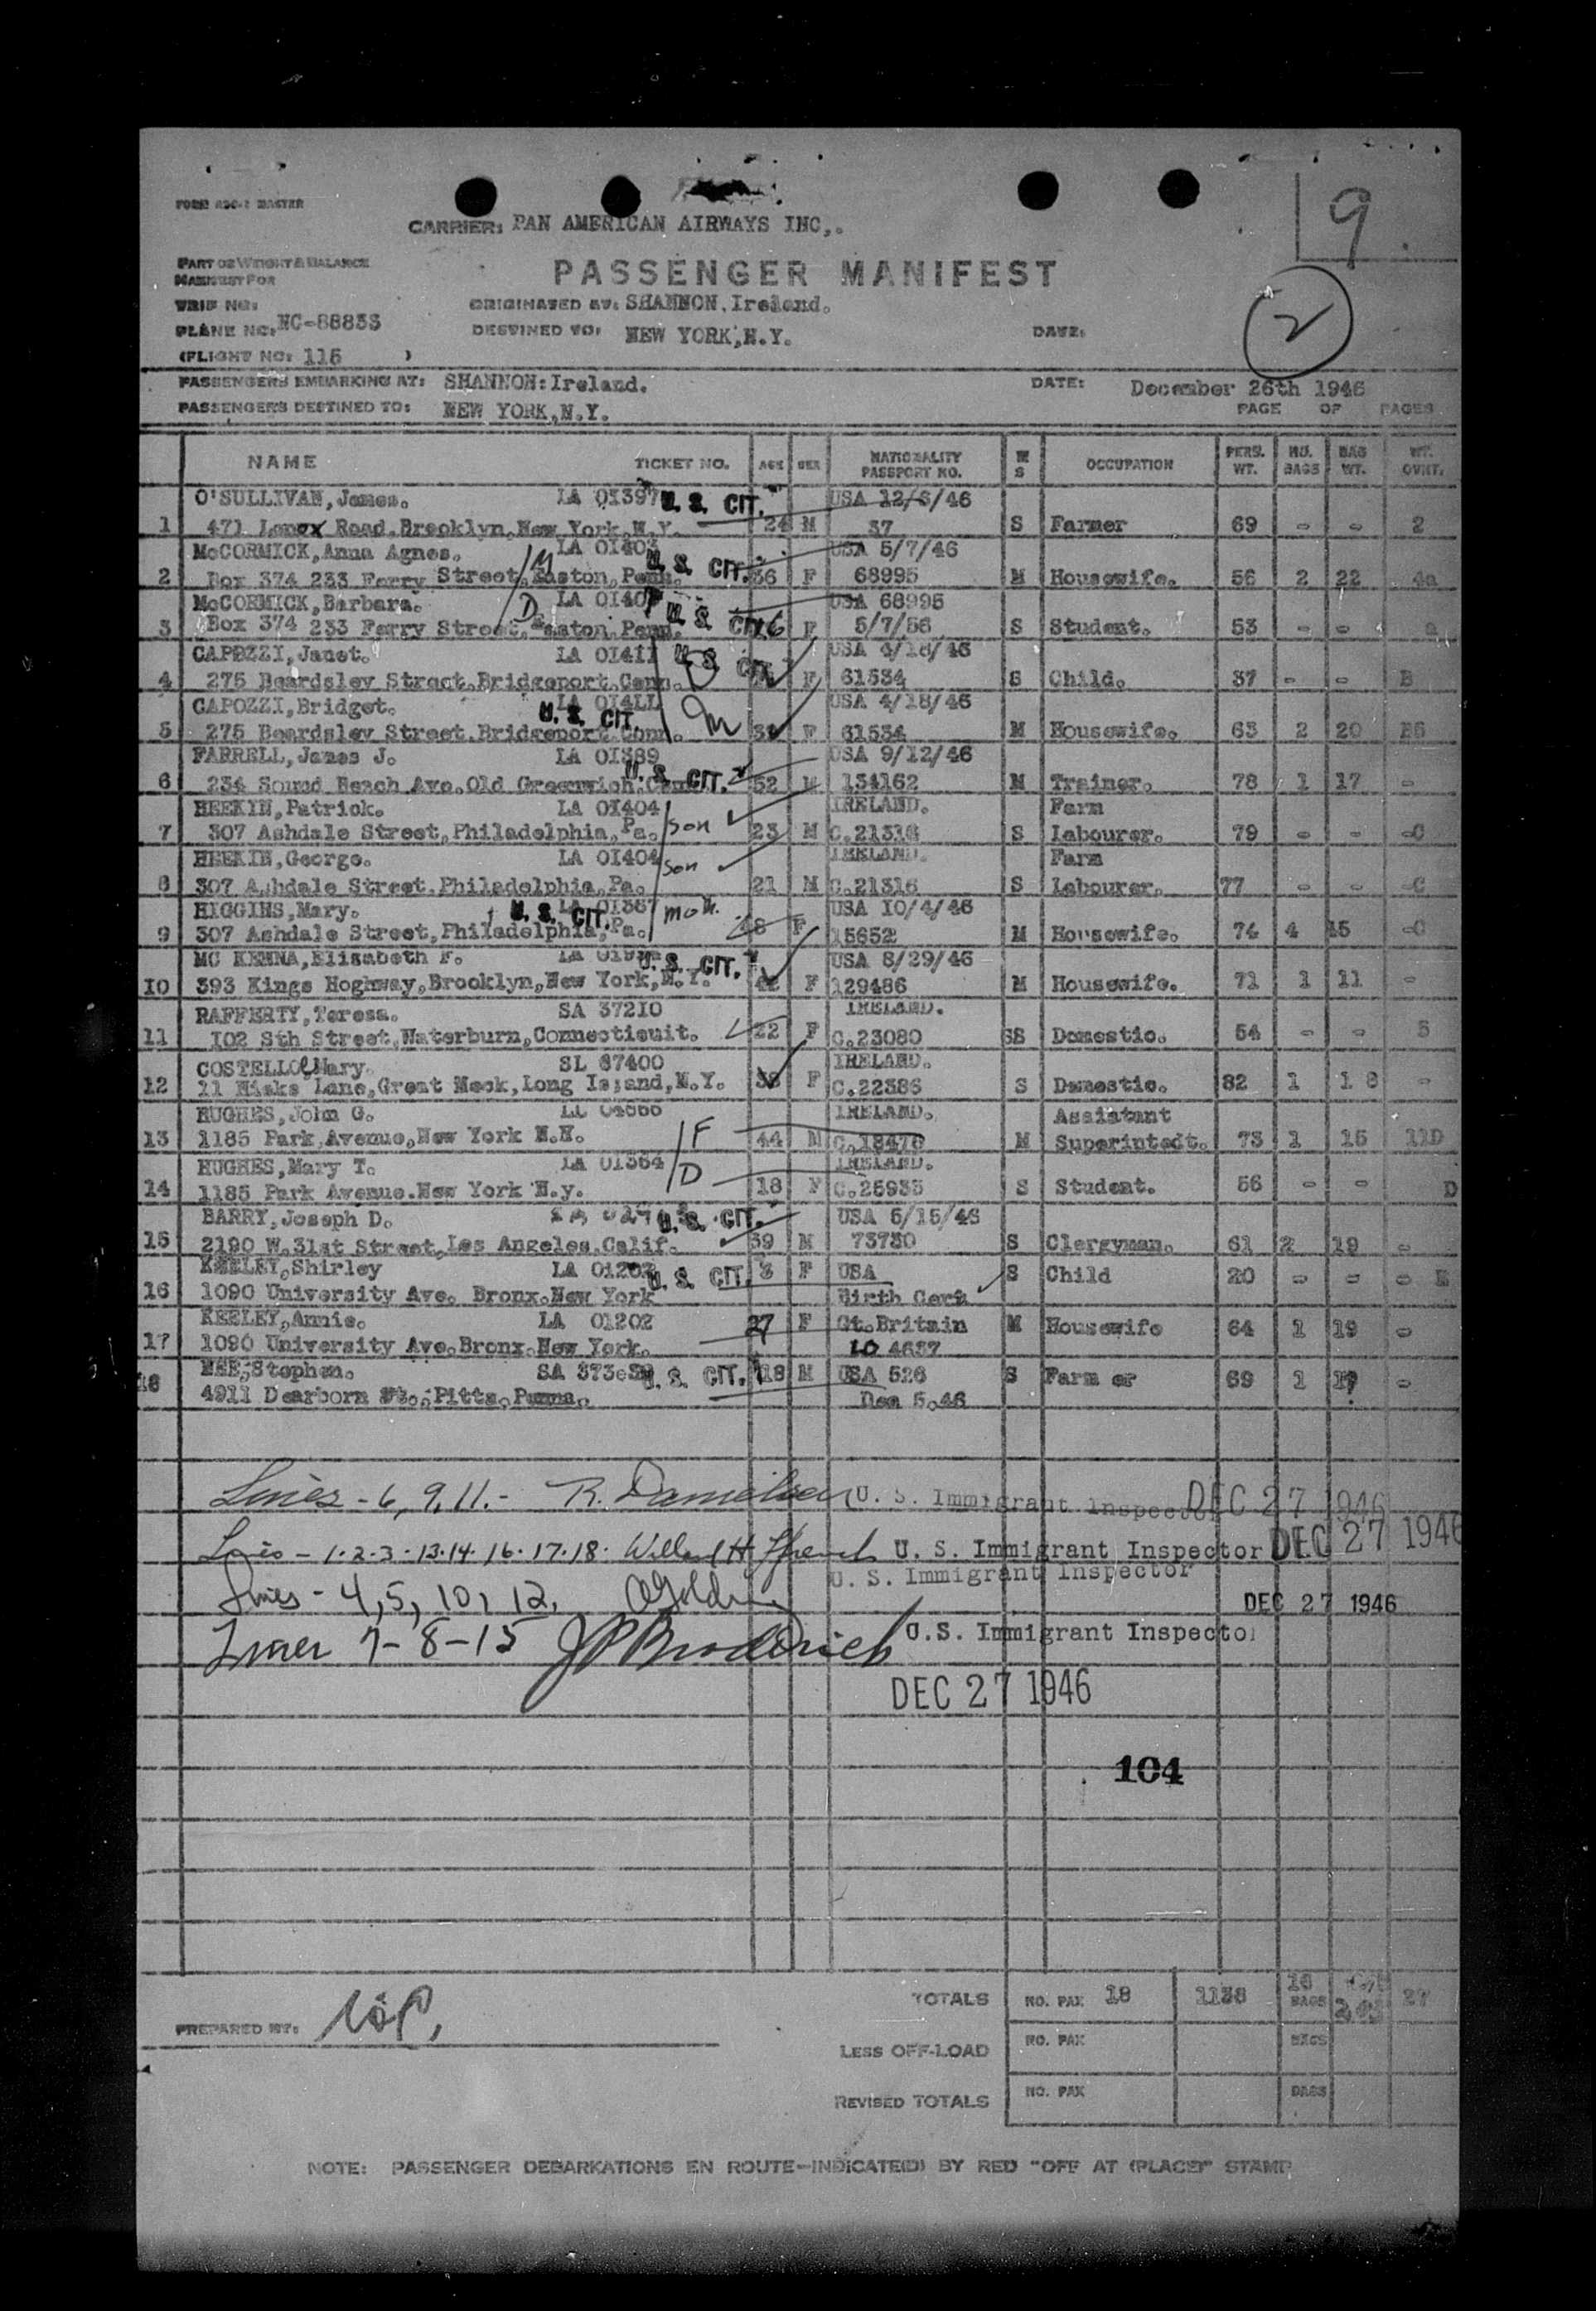 FORM ADC-2 MASTER
9
CARRIER: PAN AMERICAN AIRWAYS INC,.
PART OF WEIGHT & BALANCE
MANIFEST FOR
PASSENGER MANIFEST
2
TRIP NO:
ORIGINATED AT: SHANNON, Ireland.
PLANE NO: NC-88833
DESTINED TO: NEW YORK, N.Y.
DATE:
(FLIGHT NO: 115 )
PASSENGERS EMBARKING AT: SHANNON: Ireland.
DATE: December 26th 1946
PASSENGERS DESTINED TO: NEW YORK, N.Y.
PAGE OF PAGES
NAME TICKET NO. AGE SEX NATIONALITY PASSPORT NO. M S OCCUPATION PERS. WT. NO. BAGS BAG WT. WT. OVHT.
O'SULLIVAN, James. LA 01397 U. S. CIT. USA 12/6/46
1 471 Lenox Road, Brooklyn, New York, N.Y. 24 M 37 S Farmer 69 - - 2
McCORMICK, Anna Agnes. M LA 01403 U. S. CIT. USA 5/7/46
2 Box 374 233 Ferry Street, Easton, Penn. 36 F 68995 M Housewife. 56 2 22 4a
McCORMICK, Barbara. D LA 0140 U. S. CIT. USA 68995
3 Box 374 233 Ferry Street, Easton, Penn. 6 F 5/7/56 S Student. 53 - - a
CAPOZZI, Janet. LA 01411 U S CIT. USA 4/18/46
4 275 Beardsley Street, Bridgeport, Conn. D F 61534 S Child. 37 - - B
CAPOZZI, Bridget. LA 014LL U. S. CIT. USA 4/18/46
5 275 Beardsley Street, Bridgeport, Conn. M F 61534 M Housewife. 63 2 20 B5
FARRELL, James J. LA 01389 U. S. CIT. USA 9/12/46
6 234 Sound Beach Ave, Old Greenwich, Conn. 52 M 134162 M Trainer. 78 1 17 -
HEEKIN, Patrick. LA 01404 IRELAND. Farm
7 307 Ashdale Street, Philadelphia, Pa. son 23 M C.21316 S Labourer. 79 - - -C
HEEKIN, George. LA 01404 IRELAND. Farm
8 307 Ashdale Street, Philadelphia, Pa. son 21 M C.21315 S Labourer. 77 - - -C
HIGGINS, Mary. LA 01387 U. S. CIT. moth. USA 10/4/46
9 307 Ashdale Street, Philadelphia, Pa. 48 F 15652 M Housewife. 74 4 45 -C
MC KENNA, Elizabeth F. U. S. CIT. USA 8/29/46
10 393 Kings Hoghway, Brooklyn, New York, N.Y. 42 F 129486 M Housewife. 71 1 11 -
RAFFERTY, Teresa. SA 37210 IRELAND.
11 102 Sth Street, Waterburn, Connecticuit. 22 F C.23080 SS Domestic. 54 - - 5
COSTELLOE, Mary. SL 67400 IRELAND.
12 11 Hicks Lane, Great Neck, Long Island, N.Y. 38 F C.22386 S Domestic. 82 1 18 -
HUGHES, John G. IRELAND. Assistant
13 1185 Park, Avenue, New York N.H. F 44 M C.18476 M Superintedt. 73 1 15 11D
HUGHES, Mary T. LA 01364 IRELAND.
14 1185 Park Avenue. New York N.y. D 18 F C.25935 S Student. 56 - - D
BARRY, Joseph D. U. S. CIT. USA 5/15/46
15 2190 W. 31st Street, Los Angeles, Calif. 39 M 73730 S Clergyman. 61 2 19 -
KEELEY, Shirley LA 01202 U. S. CIT. 3 F USA S Child 20 - - - E
16 1090 University Ave. Bronx, New York Birth Cert
KEELEY, Annie. LA 01202 27 F Gt. Britain M Housewife 64 1 19 -
17 1090 University Ave, Bronx, New York. LO 4637
NEE, Stephen. SA 373e39 U. S. CIT. 18 M USA 526 S Farm er 69 1 19 -
18 4911 Dearborn St., Pitts, Penna. Dec 5.46
Lines - 6, 9, 11. - R. Danielson U. S. Immigrant Inspector DEC 27 1946
Lines - 1. 2. 3 - 13. 14. 16. 17. 18. Willard H. U. S. Immigrant Inspector DEC 27 1946
U. S. Immigrant Inspector
Lines - 4, 5, 10, 12. DEC 27 1946
Lines 7-8-15 JP Broderick U.S. Immigrant Inspector
DEC 27 1946
104
TOTALS NO. PAX 18 1138 16 BAGS 27
PREPARED BY:
LESS OFF-LOAD NO. PAX BAGS
REVISED TOTALS NO. PAX BAGS
NOTE: PASSENGER DEBARKATIONS EN ROUTE-INDICATE(D) BY RED "OFF AT (PLACE)" STAMP